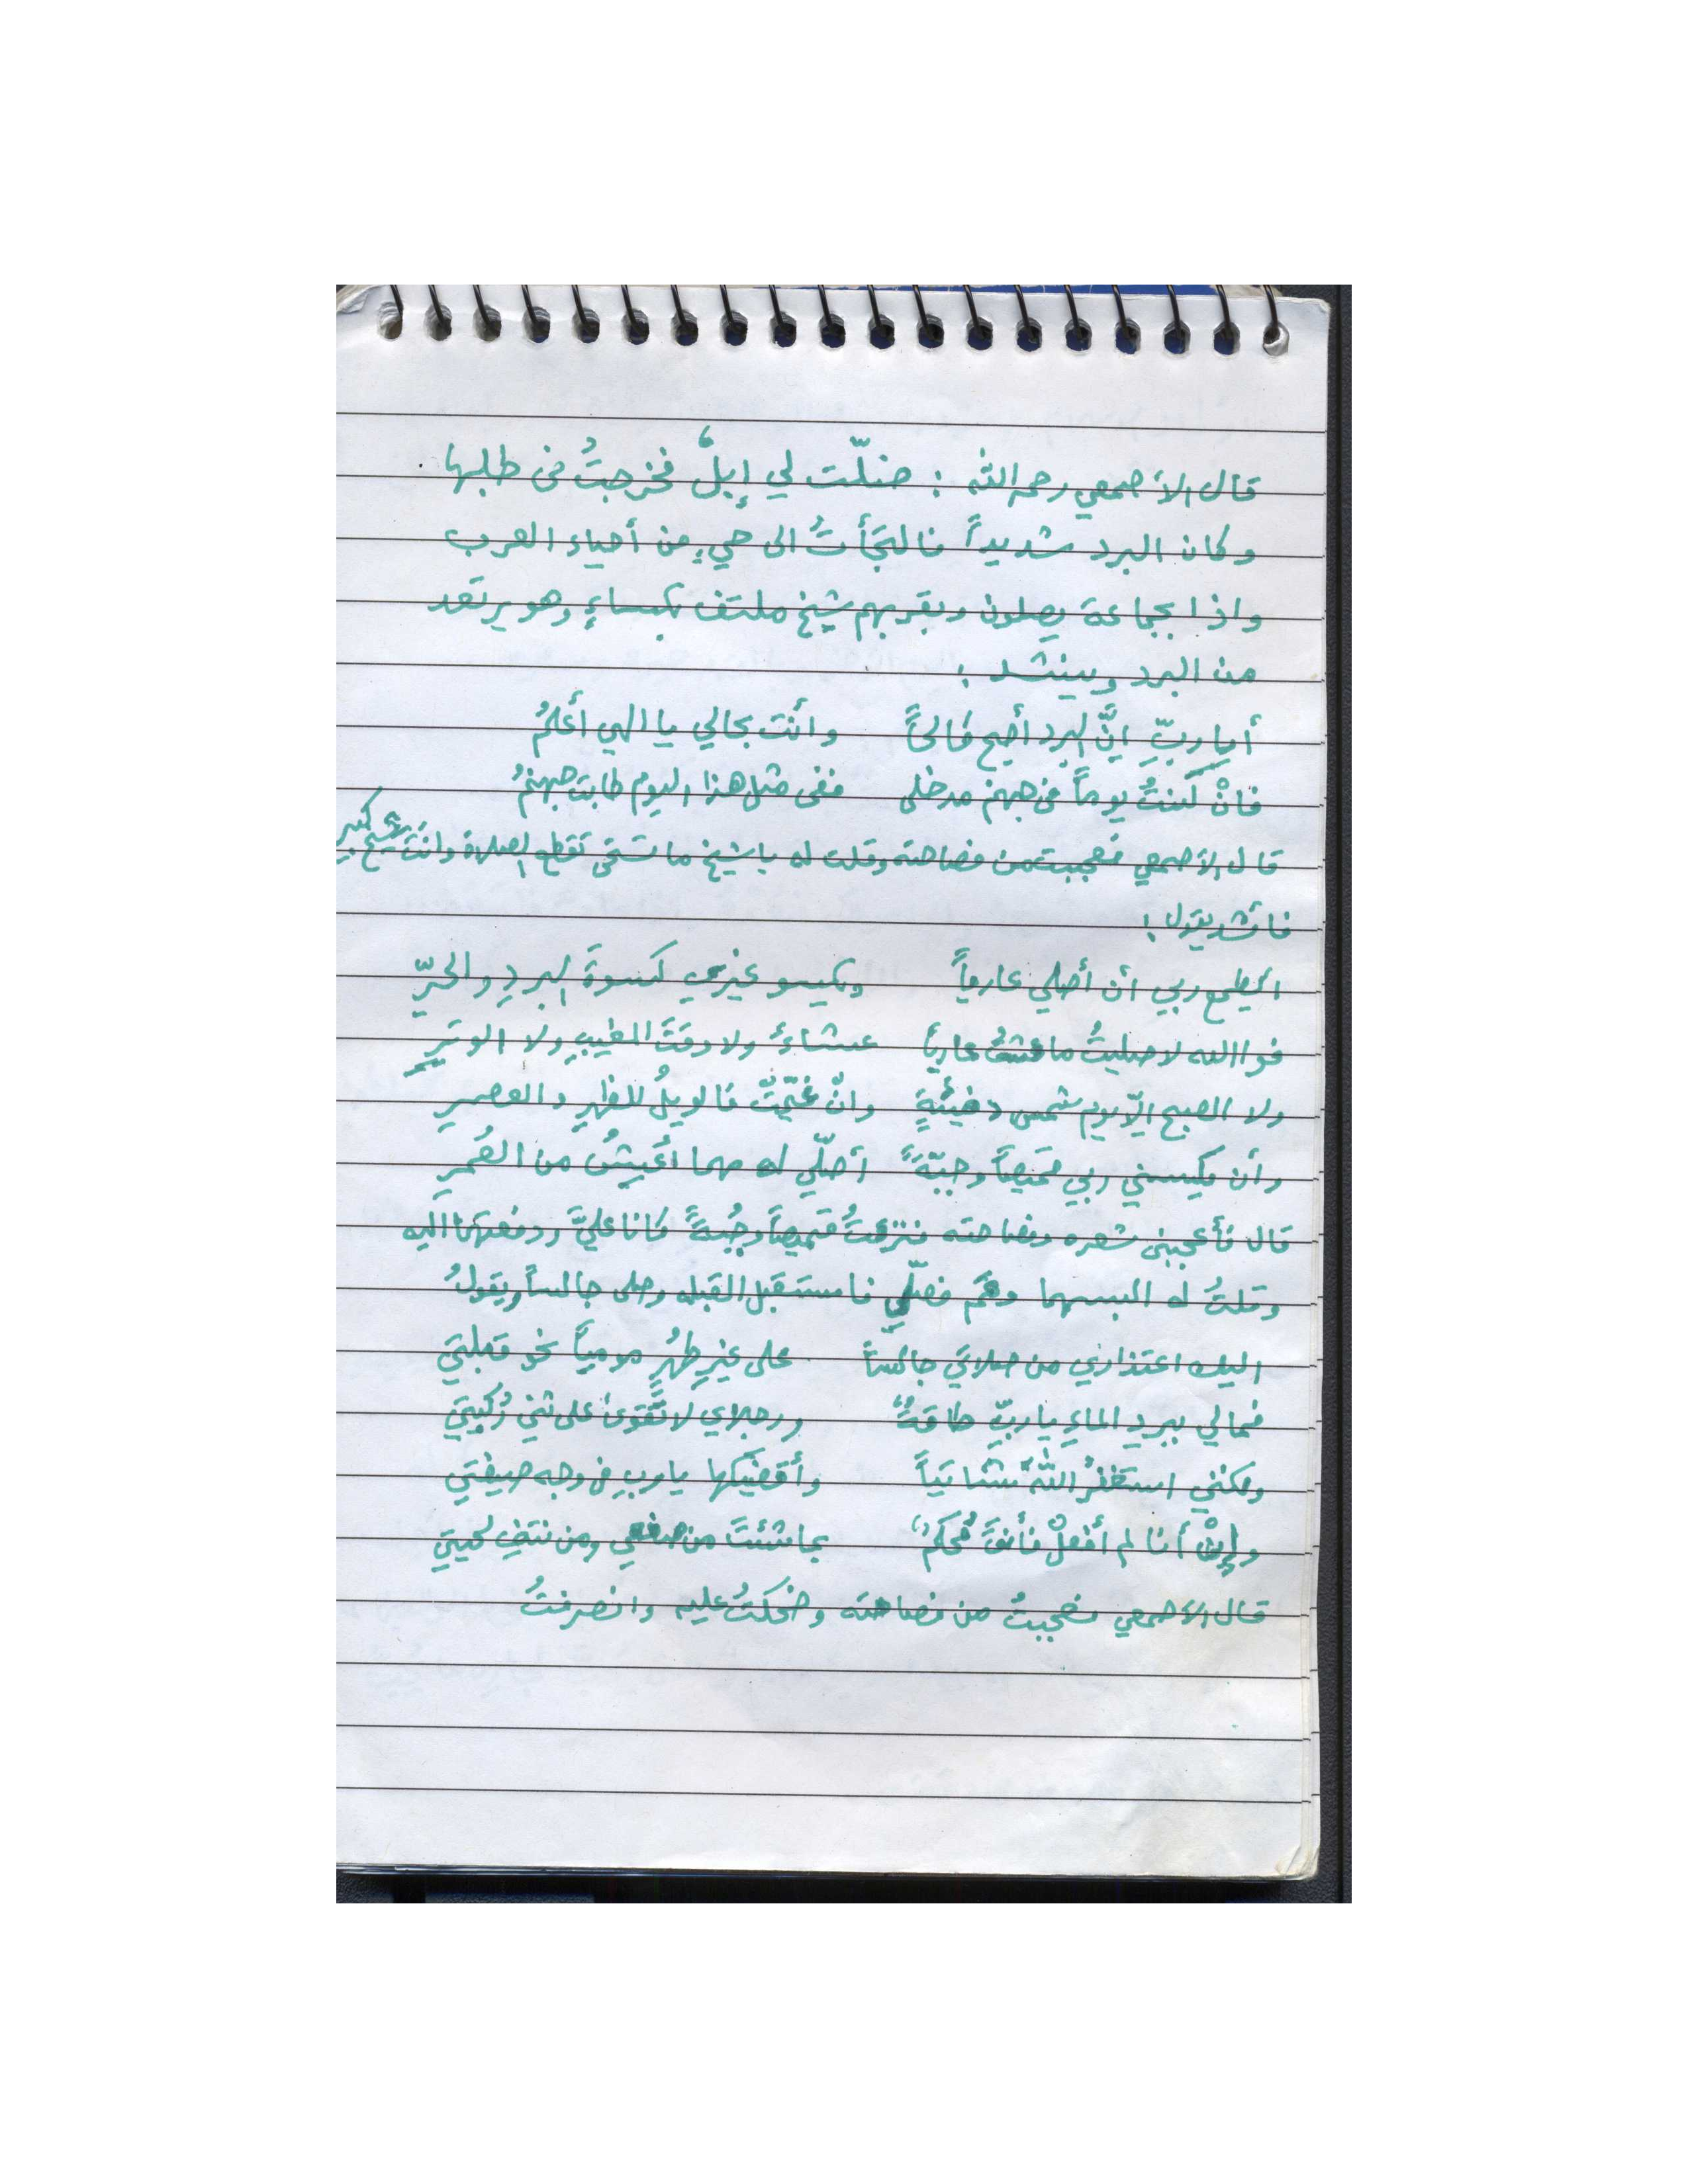 قال الأصمعي رحمه الله : ضلّت لي إبلٌ فخرجتُ في طلبها
وكان البرد شديداً فالتجَأتُ الى حيٍ من أحياء العرب
واذا بجماعة يصلون وبقربهم شيخ ملتف بكساءٍ وهو يرتعد
من البرد وينشد :
أيا ربِّ إنَّ البرد أصبح كالحاً وأنت بحالي يا الهي أعلمُ
فانْ كنتُ يوماً في جهنم مدخلي ففي مثل هذا اليوم طابت جهنمُ
قال الأصمعي فعجبت من فصاحته وقلت له يا شيخ ما تستحي تقطع الصلاة وانتَ شيخ كبير
فأنشد يقول :
ايطمع ربي أن أصلي عارياً ويكسو غيري كسوةَ البردِ والحرِّ
فوالله لا صليتُ ما عشتُ عارياً عشاءً ولا وقتَ المغيبِ ولا الوترِ
ولا الصبح الّا يوم شمس دفيئةٍ وانْ غيّمتْ فالويلُ للظهرِ والعصرِ
وأن يكسني ربي قميصاً وجبّةً أصلّي له مهما أعيشُ من العُمرِ
قال فأعجبني شعره وفصاحته فنزعتُ قميصاً وجُبةً كانا عليَّ ودفعتهما اليه
وقلتُ له البسهما وقم فصلّي فاستقبل القبله وصلى جالساً ويقولُ
اليك اعتذاري من صلاتي جالساً على غيرِ طهُرٍ مومياً نحو قبلتي
فمالي ببردِ الماءِ يا ربِّ طاقةٌ ورجلاي لا تَقوى على ثني رُكبتي
ولكنني استغفرُ اللهَ شاتياً وأقضيكها يا ربِ في وجه صيفتي
وإنْ أنا لم أفعلْ فأنتَ مُحكمٌ بما شئتَ من صفعي ومن نتفِ لحيتي
قال الأصمعي فعجبتُ من فصاحته وضحكتُ عليه وانصرفتُ